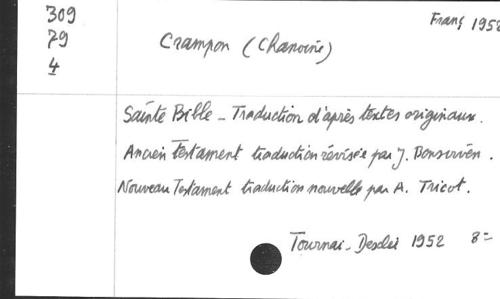 309
79
4
Franç 1952
Crampon (Chanoine)
Sainte Bible - Traduction d'après textes originaux.
Ancien Testament traduction révisée par J. Bonsirven.
Nouveau Testament traduction nouvelle par A. Tricot.
Tournai - Desclée 1952 8=